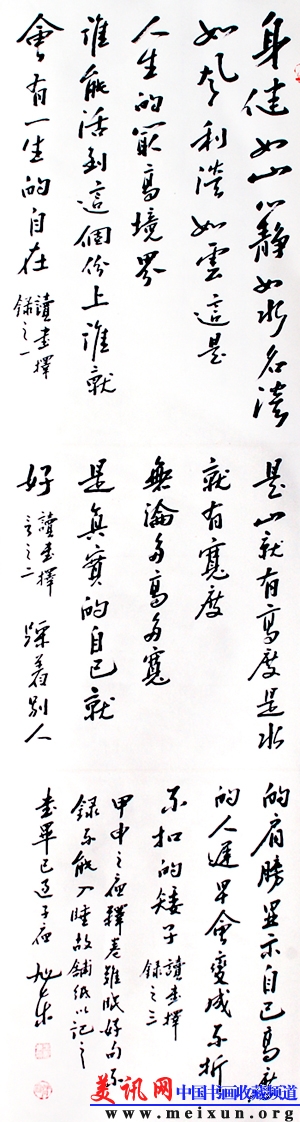 身健如山心靜如水名淡
如風利淡如雲這是
人生的最高境界
誰能活到這個份上誰就
會有一生的自在
讀書擇
錄之一
是山就有高度是水
就有寬度
無論多高多寬
是真實的自己就
好
讀書擇
之二
踩着別人
的肩膀顯示自己高度
的人遲早會變成不折
不扣的矮子
讀書擇
錄之三
甲申之夜釋卷難眠好句不
錄不能入睡故鋪紙以記之
書畢已過子夜
美讯网 中国书画收藏频道
www.meixun.org